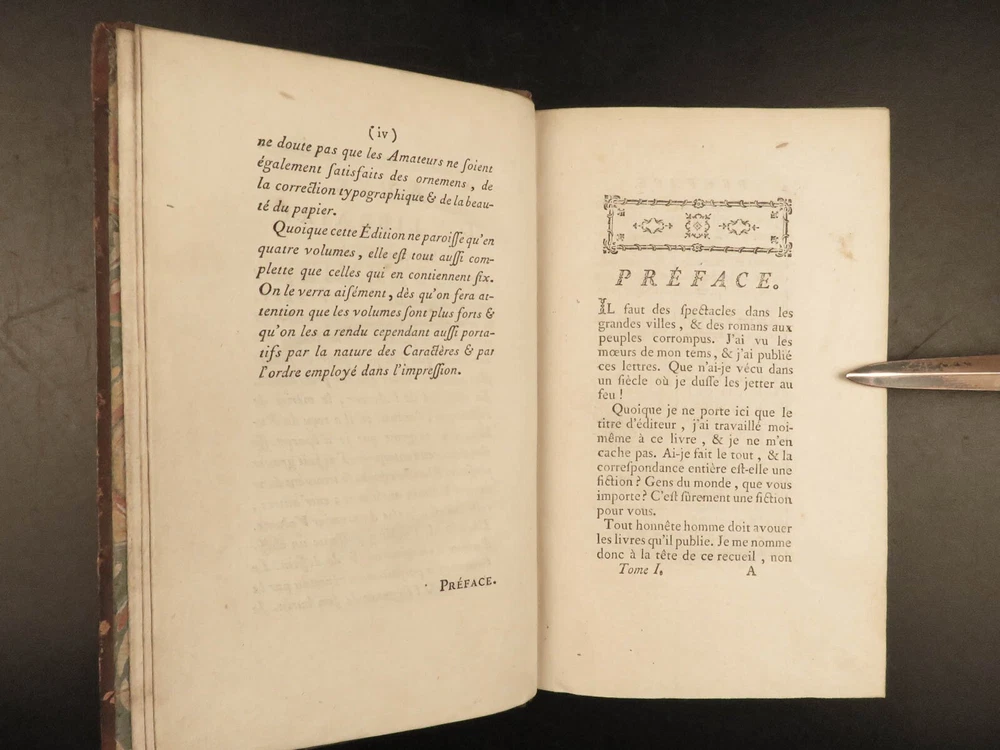 (iv)
ne doute pas que les Amateurs ne ſoient
également ſatisfaits des ornemens, de
la correction typographique & de la beau-
té du papier.
Quoique cette Édition ne paroiſſe qu'en
quatre volumes, elle eſt tout auſſi com-
plette que celles qui en contiennent ſix.
On le verra aiſément, dès qu'on fera at-
tention que les volumes ſont plus forts &
qu'on les a rendu cependant auſſi porta-
tifs par la nature des Caractères & par
l'ordre employé dans l'impreſſion.
PRÉFACE.
PRÉFACE.
IL faut des ſpectacles dans les
grandes villes, & des romans aux
peuples corrompus. J'ai vu les
mœurs de mon tems, & j'ai publié
ces lettres. Que n'ai-je vécu dans
un ſiècle où je duſſe les jetter au
feu !
Quoique je ne porte ici que le
titre d'éditeur, j'ai travaillé moi-
même à ce livre, & je ne m'en
cache pas. Ai-je fait le tout, & la
correſpondance entière eſt-elle une
fiction ? Gens du monde, que vous
importe ? C'eſt ſûrement une fiction
pour vous.
Tout honnête homme doit avouer
les livres qu'il publie. Je me nomme
donc à la tête de ce recueil, non
Tome I. A